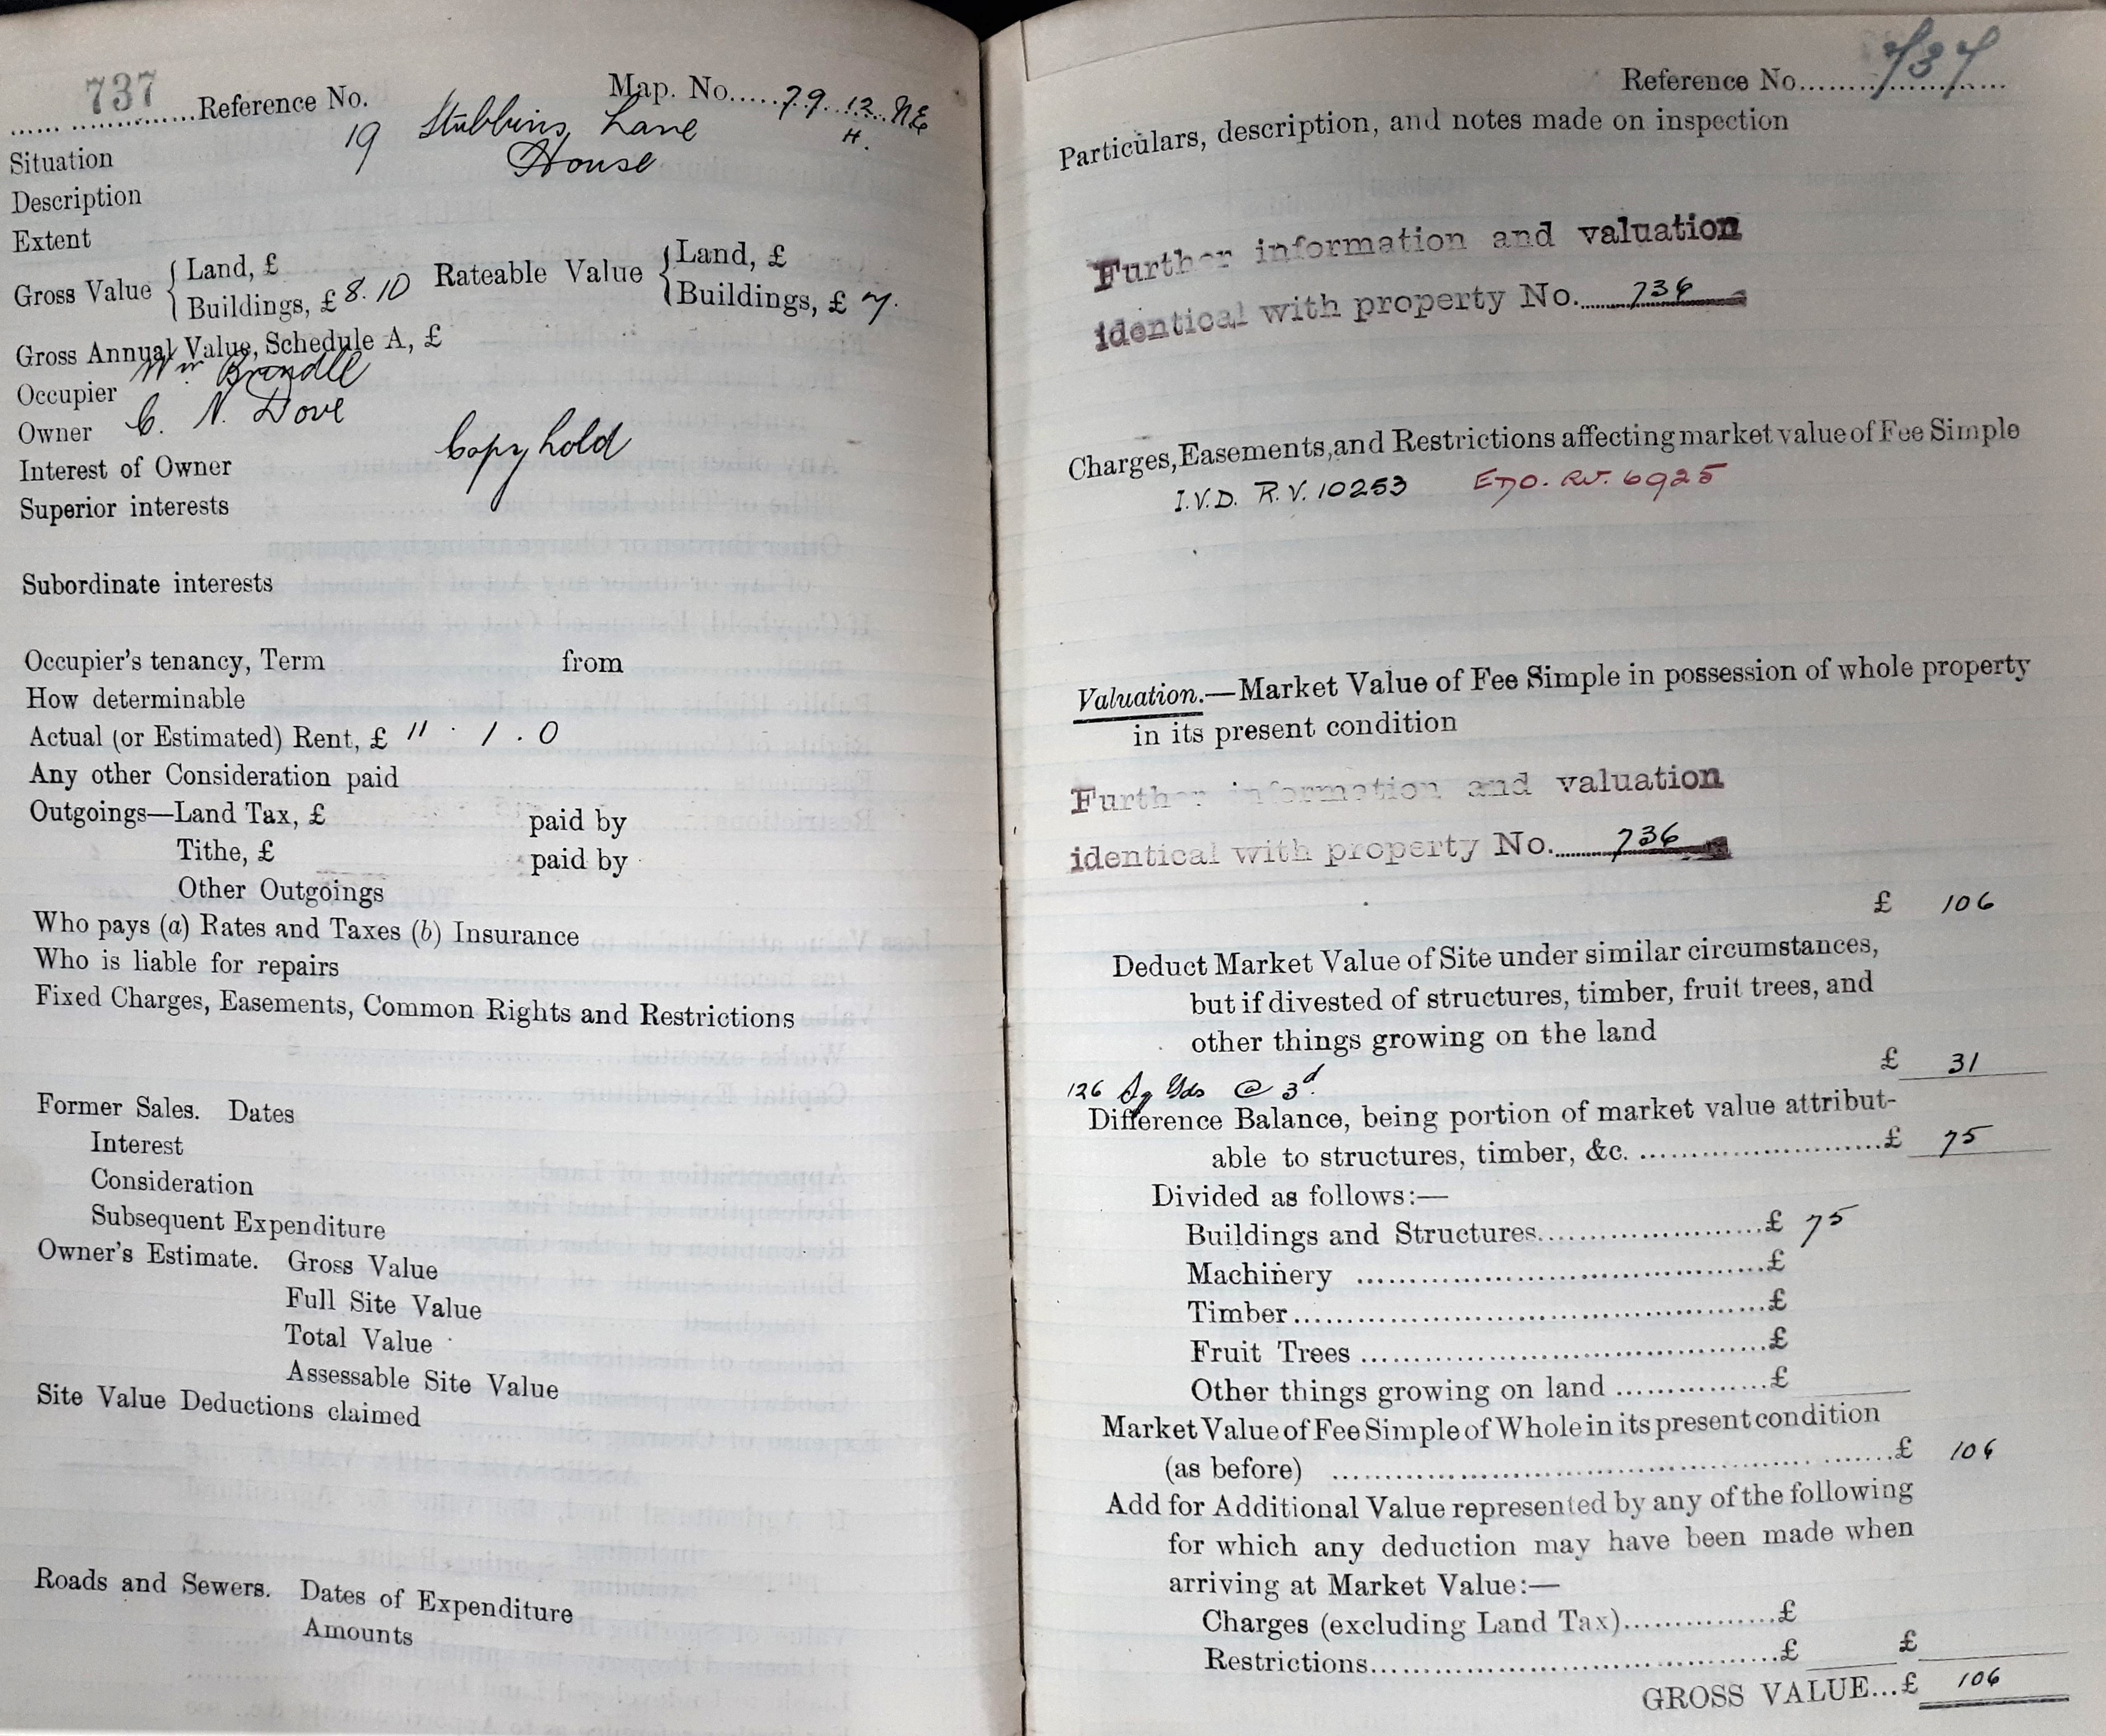 737 Reference No. Map. No. 79. 12. NE
H.
Situation 19 Stubbins Lane
Description House
Extent
Gross Value { Land, £ Rateable Value { Land, £
Buildings, £ 8. 10 Buildings, £ 7.
Gross Annual Value, Schedule A, £
Occupier Wm Brindle
Owner C. N. Dove
Interest of Owner Copyhold
Superior interests
Subordinate interests
Occupier's tenancy, Term from
How determinable
Actual (or Estimated) Rent, £ 11 . 1 . 0
Any other Consideration paid
Outgoings—Land Tax, £ paid by
Tithe, £ paid by
Other Outgoings
Who pays (a) Rates and Taxes (b) Insurance
Who is liable for repairs
Fixed Charges, Easements, Common Rights and Restrictions
Former Sales. Dates
Interest
Consideration
Subsequent Expenditure
Owner's Estimate. Gross Value
Full Site Value
Total Value
Assessable Site Value
Site Value Deductions claimed
Roads and Sewers. Dates of Expenditure
Amounts
Reference No. 737
Particulars, description, and notes made on inspection
Further information and valuation
identical with property No. 736
Charges, Easements, and Restrictions affecting market value of Fee Simple
I.V.D. R.V. 10253 6925
Valuation.—Market Value of Fee Simple in possession of whole property
in its present condition
Further information and valuation
identical with property No. 736
£ 106
Deduct Market Value of Site under similar circumstances,
but if divested of structures, timber, fruit trees, and
other things growing on the land
£ 31
126 Sq Yds @ 3d.
Difference Balance, being portion of market value attribut-
able to structures, timber, &c. £ 75
Divided as follows:—
Buildings and Structures £ 75
Machinery £
Timber £
Fruit Trees £
Other things growing on land £
Market Value of Fee Simple of Whole in its present condition
(as before) £ 106
Add for Additional Value represented by any of the following
for which any deduction may have been made when
arriving at Market Value:—
Charges (excluding Land Tax) £
Restrictions £ £
GROSS VALUE...£ 106